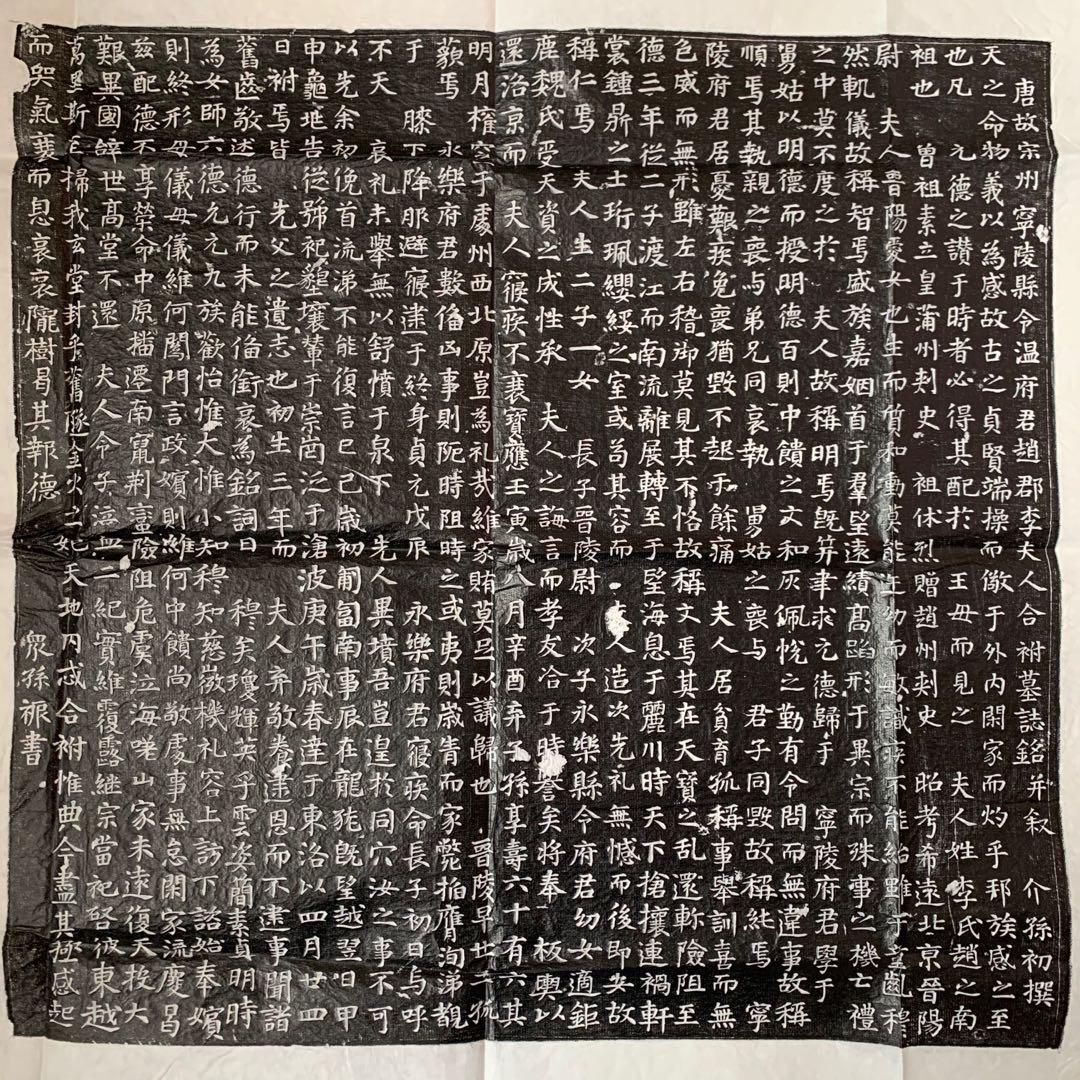 唐故宗州寧陵縣令温府君趙郡李夫人合祔墓誌銘并叙 介孫初撰
天之命物義以為感故古之貞賢端操而儆于外内閑家而灼乎邦族感之至
也凡 元德之讚于時者必得其配於 王毋而見之 夫人姓李氏趙之南
祖也 曽祖素立皇蒲州刺史 祖休烈贈趙州刺史 昭考希遠北京晉陽
尉 夫人晋陽處女也生而質和動莫能 幼而敏識疾不能紿雖于童齓穆
然軌儀故稱智焉盛族嘉姻首于羣望遠績髙蹈形于異宗而殊事之機亡禮
之中莫不度之於 夫人故稱明焉旣筓聿求元德歸于 寧陵府君學于
舅姑以明德而授明德百則中饋之文和灰佩帨之勤有令問而無違事故稱
順焉其執親之喪与弟兄同哀執 舅姑之喪与 君子同毁故稱紪焉 寧
陵府君居憂艱疾免喪猶毁不起于餘痛 夫人居貧育孤稱事舉訓喜而無
色威而無形雖左右稽御莫見其不恪故稱文焉其在天寶之乱還斬險阻至
德三年從二子渡江而南流離展轉至于望海息于麗川時天下搶攘連禍軒
裳鍾鼎之士珩珮纓綏之室或苟其容而 夫人造次先礼無憾而後即安故
稱仁焉 夫人生二子一女 長子晉陵尉 次子永樂縣令府君幼女適鉅
鹿魏氏受天資之成性承 夫人之誨言而孝友洽于時譽矣將奉 板輿以
還洛京而 夫人寢疾不衰寳應壬寅歳八月辛酉弃子孫享壽六十有六其
明月權窆于處州西北原豈為礼哉維家賄莫足以議歸也 晉陵早世二孤
藐焉 永樂府君數俻凶事則阨時阻時之或夷則歳眚而家斃拊膺洵涕覩
于 膝下降服避寢逮于終身貞元戊辰 永樂府君寢疾命長子初日与呼
不天 哀礼未舉無以舒憤于泉下 先人異墳吾豈遑於同穴汝之事不可
以先余初俛首流涕不能復言巳已歳初匍匐南事辰在龍旄旣望越翌日甲
申龜筮告從號祀壟壤輦于崇罔泛于滄波庚午歳春達于東洛以四月廿四
日祔焉皆 先父之遺志也初生三年而 夫人弃敬養逮恩而不逮事聞諸
舊齒敬述 德行而未能俻銜哀為銘詞曰 穆矣瓊輝英乎雲姿簡素貞明時
為女師六德允元九族歡怡惟大惟小知穆知慈徽機礼容上訪下諮始奉嬪
則終形母儀母儀維何閫門言政嬪則維何中饋尚敬處事無怠閑家流慶昌
兹配德不享榮命中原搶遷南竄荆蠻險阻危虞泣海嗟山家未遠復天投大
艱異國辭世髙堂不還 夫人令子 二紀實維覆露繼宗當祀咎彼東越
萬里斯 掃我玄堂封乎舊隧金火之 天地丙忒合祔惟典今盡其極感起
而 氣衰而息哀哀隴樹曷其報德 衆孫 書